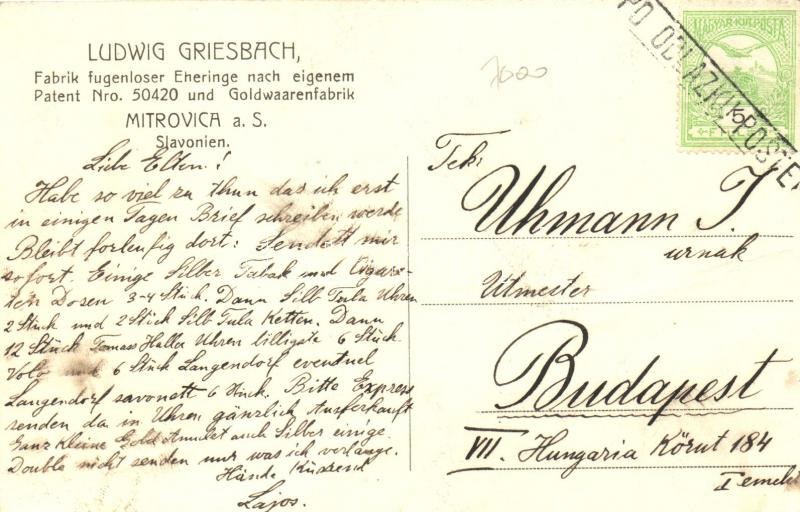 LUDWIG GRIESBACH,
Fabrik fugenloser Eheringe nach eigenem
Patent Nro. 50420 und Goldwaarenfabrik
MITROVICA a. S.
Slavonien.
7000
PO ODLAZKU POŠTE
MAGYAR·KIR·POSTA
Liebe Elten!
Habe so viel zu thun das ich erst
in einigen Tagen Brief schreiben werde
Bleibt forleufig dort: Sendett mir
sofort. Einige Silber Tabak und Cigare-
ten Dosen 3-4 Stück. Dann Silb Tula Uhren
2 Stück und 2 Stück Silb Tula Ketten. Dann
12 Stück Haller Uhren billigste 6 Stück
und 6 Stück Langendorf eventuel
Langendorf savonett 6 Stück. Bitte Express
senden da in Uhren gänzlich Ausferkauft
Ganz kleine Gold Amulet auch Silber einige.
Double nicht senden nur was ich verlange.
Hände Küssend
Lajos.
Tek.
Uhmann J.
urnak
Utmester
Budapest
VII. Hungaria Körut 184
I emelet